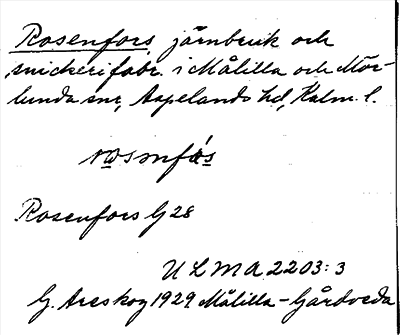 Rosenfors, järnbruk och
snickerifabr. i Målilla och Mör-
lunda snr, Aspelands hd, Kalm. l.
Rosenfors G 28
ULMA 2203:3
G. Areskog 1929 Målilla-Gårdveda